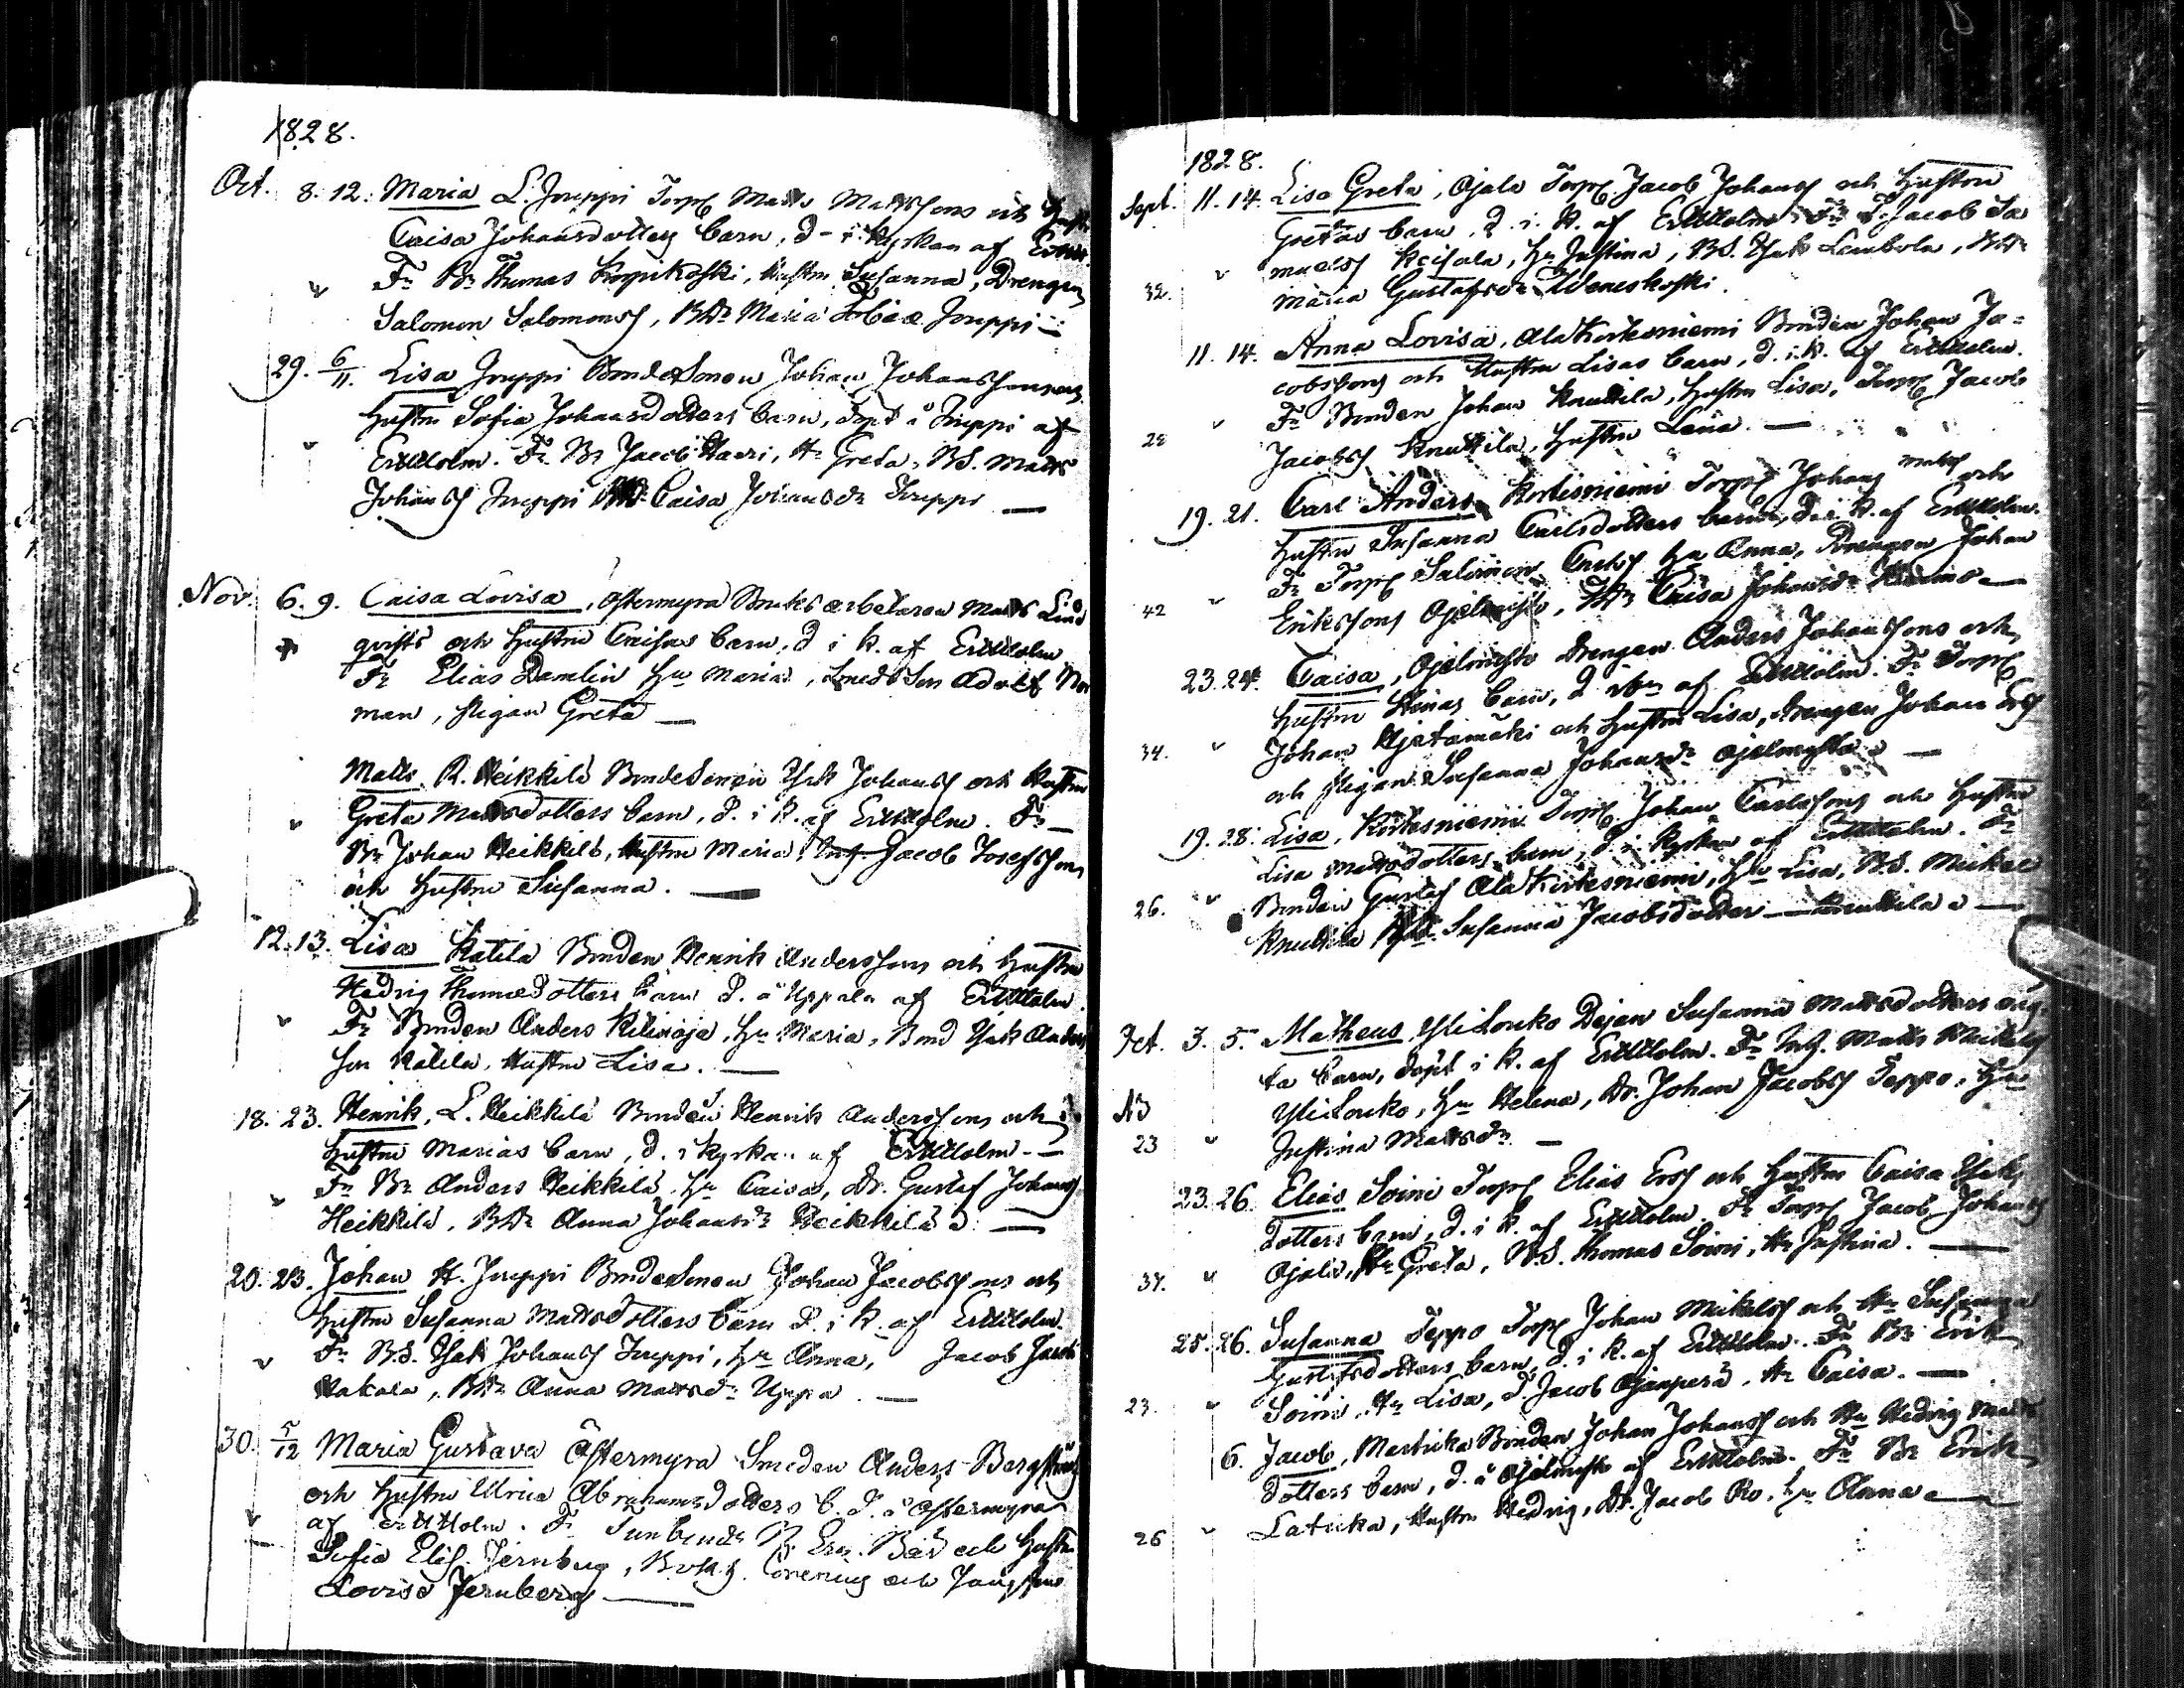 1828.
Oct. 8. 12. Maria L. Jouppi Torp Matts Mattssons och Hustr
Caisa Johansdotters barn, d. i kyrkan af
Fr Br Thomas Korpikoski, Hustrn Susanna, Drengen
Salomon Salomonss, BDr Maria Jouppi
29. 6/11. Lisa Jouppi Bondesonen Johan Johanssons
Hustru Sofia Johansdotters barn, döpt å Jouppi af
Ertttholm. Fr. Br Jacob Harri, Hr Greta, BS. Matts
Johanss Jouppi BDr Caisa Johansdr Jouppi
Nov. 6. 9. Caisa Lovisa, Östermyra Bruks arbetaren Matts Lind
qvists och Hustru Caisas barn, d i k. af Erttholm
Fr Elias Damlin Hu Maria, Smeds Son Adolf Nor
man, pigan Greta
Matts. R. Heikkilä Bondesonen Isak Johanss och Hustru
Greta Mattsdotters barn, d. i k. af Erttholm. Fr
Br Johan Heikkilä, Hustru Maria, Jacob Josefssons
och Hustru Susanna.
12. 13. Lisa Katila Bonden Henrik Anderssons och Hustru
Hedvig Thomædotters barn d. å Uppala af Erttholm
Fr Bonden Anders Kilinoja, Hu Maria, Bond Isak Anders
son Katila, Hustru Lisa.
18. 23. Henrik, L. Heikkilä Bonden Henrik Anderssons och
Hustru Marias barn, d. i kyrkan af Erttholm.
Fr Br Anders Heikkilä Hu Caisa, Dr. Gustaf Johanss
Heikkilä, BDr Anna Johansdr Heikkilä
20. 23. Johan H. Jouppi Bondesonen Johan Jacobssons och
Hustru Susanna Mattsdotters barn d. i k. af Erttholm.
Fr BS. Isak Johanss Jouppi, Hu Anna, Jacob Jacob
Hakala, BDr Anna Mattsdr Uppa
30. 5/12 Maria Gustava Östermyra Smeden Anders Bergström
och Hustru Ulrica Abrahamsdotters b. d. å Östermyra
af Erttholm. Fr och Hustru
Sofia Elis. Jernberg, och Jungfru
Lovisa Jernberg
1828.
Sept. 11. 14. Lisa Greta, Ojala Torp Jacob Johanss och Hustru
Gretas barn, d. i. k. af Erttholm. Fr T. Jacob Sa
muelss Keisala, Hu Justina, BS. Isak Lembola, BDr
32. Maria Gustafsdr Weneskoski.
11. 14. Anna Lovisa, Ala Kortesniemi Bonden Johan Ja=
cobssons och Hustru Lisas barn, d. i. k. af Erttholm.
Fr Bonden Johan Knuttila, Hustru Lisa, Torp Jacob
28 Jacobss Knuttila, Hustru Lena.
19. 21. Carl Anders Kortesniemi Torp Johans Matss och
Hustru Susanna Carlsdotters barn, d. i k. af Erttholm.
Fr Torp Salomon Carls Hu Anna, Drengen Johan
42 Erikssons Ojelmisto, BDr Caisa Johansdr
23. 24. Caisa, Ojelmisto Drengen Anders Johanssons och
Hustru Stinas barn, d. af Erttholm. Fr Torp
Johan och Hustru Lisa, Drengen Johan
34. och pigan Susanna Johansdr Ojelmysto
19. 28. Lisa, Kortesniemi Torp Johan Carlssons och Hustru
Lisa Mattsdotters barn, d. i. kyrkan af Erttholm. Fr
Bonden Gustaf Ala Kortesniemi, Hu Lisa, BS. Mickel
26. Knuttila Susanna Jacobsdotter Knuttila
Oct. 3. 5. Matheus, Yli Louko Pigan Susanna Mattsdotters oäg
ta barn, döpt i k. af Erttholm. Fr Matts Mickels
Yli Louko, Hu Helena, Dr. Johan Jacobss Teppo, Hu
23 Justina Mattsdr
23. 26. Elias Soini Torp Elias Erss och Hustru Caisa Isaks
dotters barn, d. i k. af Erttholm. Fr Torp Jacob Johanss
34. Ojala, Hu Greta, BS. Thomas Soini, Hu Justina.
25. 26. Susanna Teppo Torp Johan Mickelss och Hu Susanna
Gustafsdotters barn, d. i k. af Erttholm. Fr Br Erik
23. Soini, Hu Lisa, d. Jacob Ojanperä, Hu Caisa.
6. Jacob, Marticka Bonden Johan Johanss och Hu Hedvig Matts
dotters barn, d. å Ojelmysto af Erttholm. Fr Br Erik
26 Laticka, Hustru Hedvig, Dr. Jacob Ro, Hu Anna